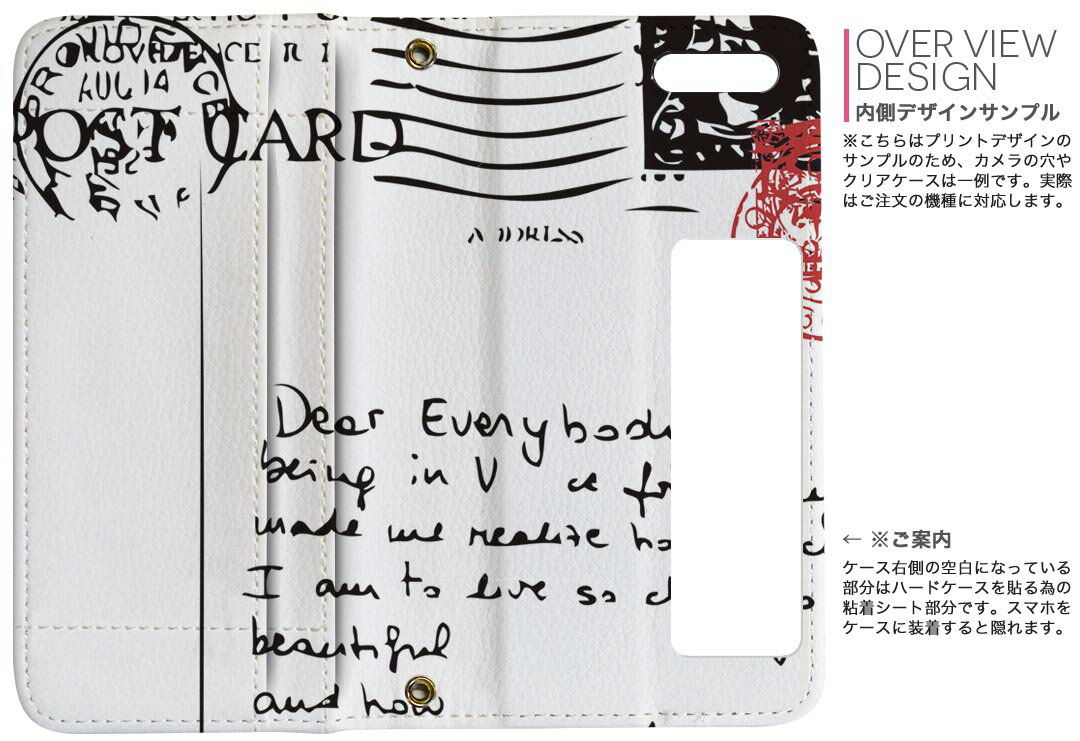 PROVIDENCE R I
AUG 14
POST CARD
Dear Everybod
being in V ce fr
made me realize ho
I am to live so
beautiful
and how
OVER VIEW
DESIGN
内側デザインサンプル
※こちらはプリントデザインの
サンプルのため、カメラの穴や
クリアケースは一例です。実際
はご注文の機種に対応します。
← ※ご案内
ケース右側の空白になっている
部分はハードケースを貼る為の
粘着シート部分です。スマホを
ケースに装着すると隠れます。